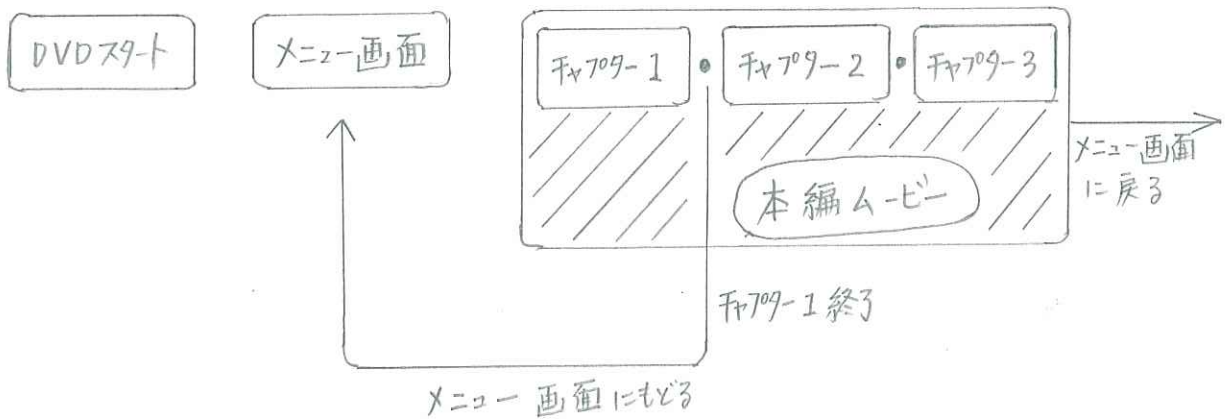 DVDスタート
メニュー画面
チャプター1
チャプター2
チャプター3
本編ムービー
メニュー画面
に戻る
チャプター1終了
メニュー画面にもどる